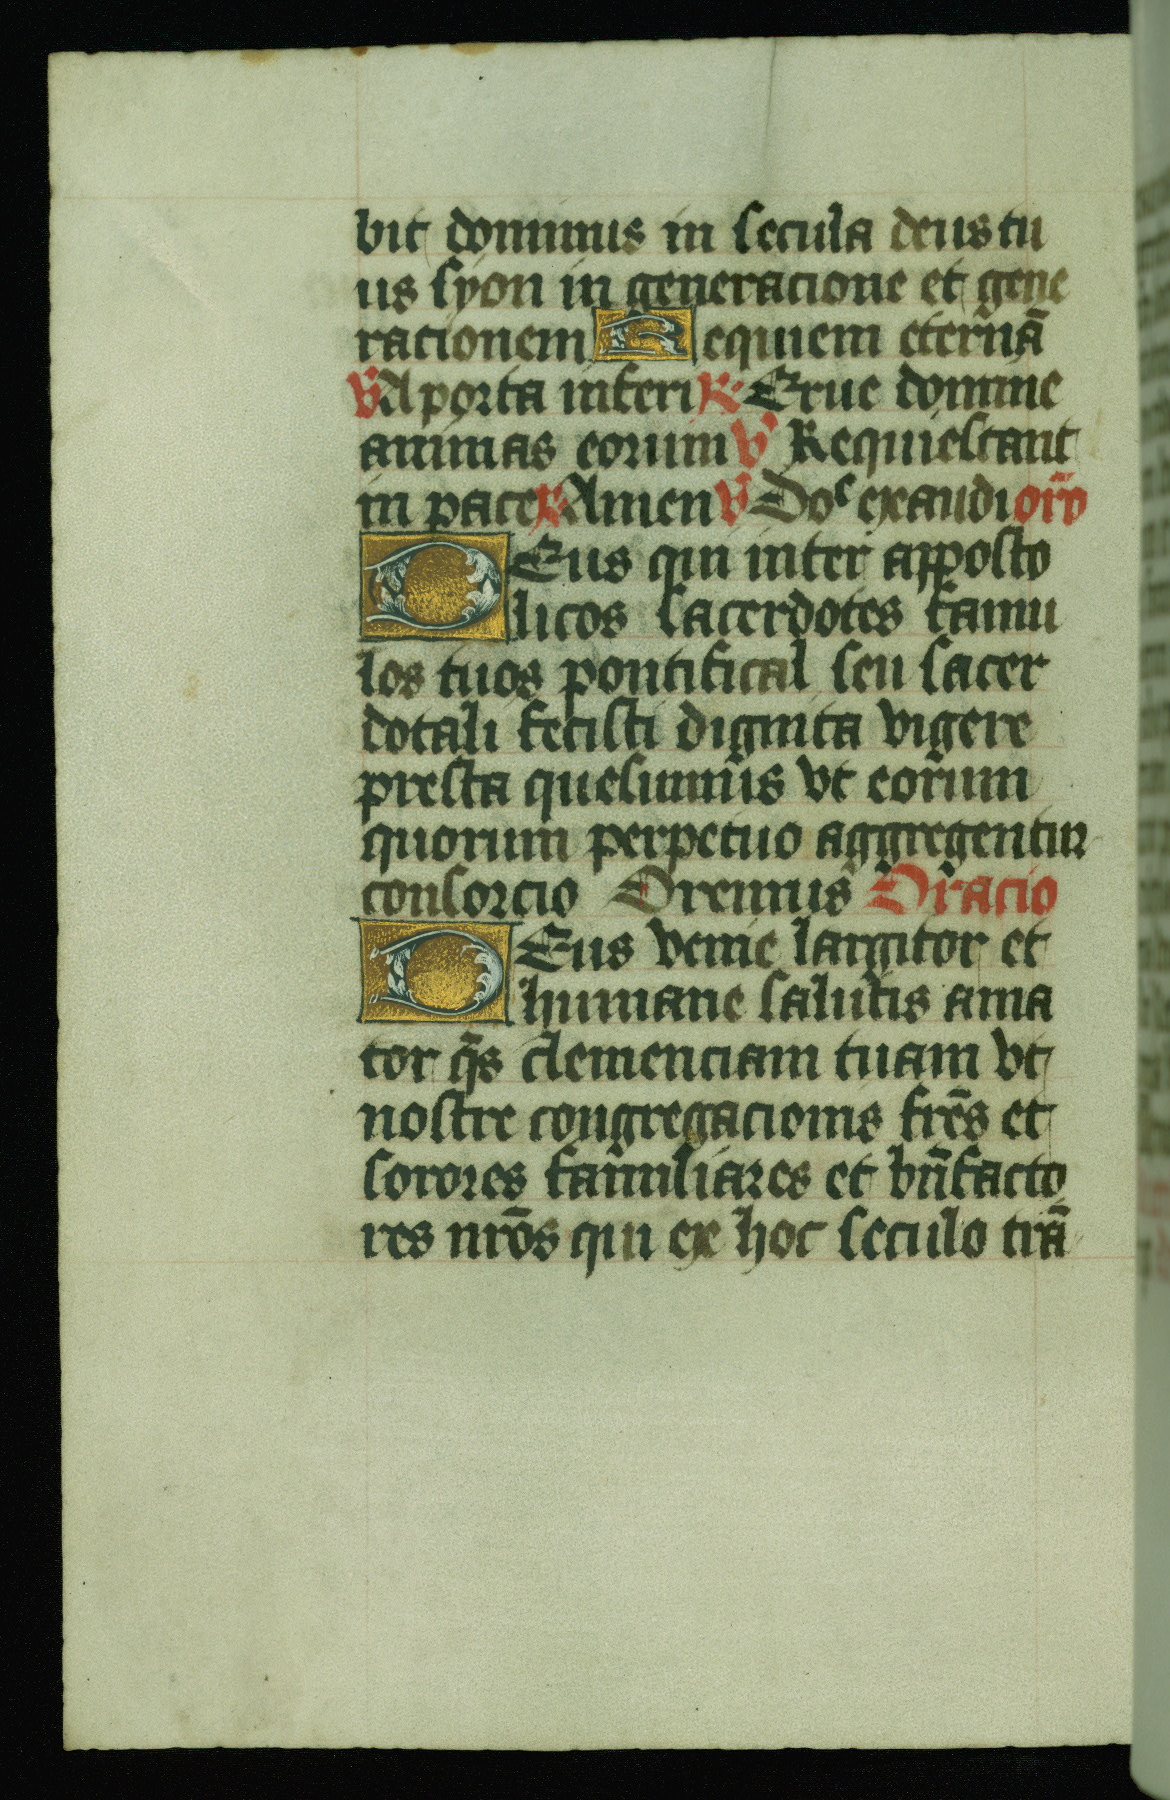 bit dominus in secula deus tu
us syon in generacione et gene
racionem Requiem eternā
℣ A porta inferi ℟ Erue domine
animas eorum ℣ Requiescant
in pace ℟ Amen ℣ Doᶜ exaudi orō
Deus qui inter apposto
licos sacerdotes famu
los tuos pontifical seu sacer
dotali fecisti dignita vigere
presta quesumus vt eorum
quorum perpetuo aggregentur
consorcio Oremus Oracio
Deus venie largitor et
humane salutis ama
tor q̄s clemenciam tuam vt
nostre congregacionis frēs et
sorores familiares et bn̄facto
res nrōs qui ex hoc seculo trā